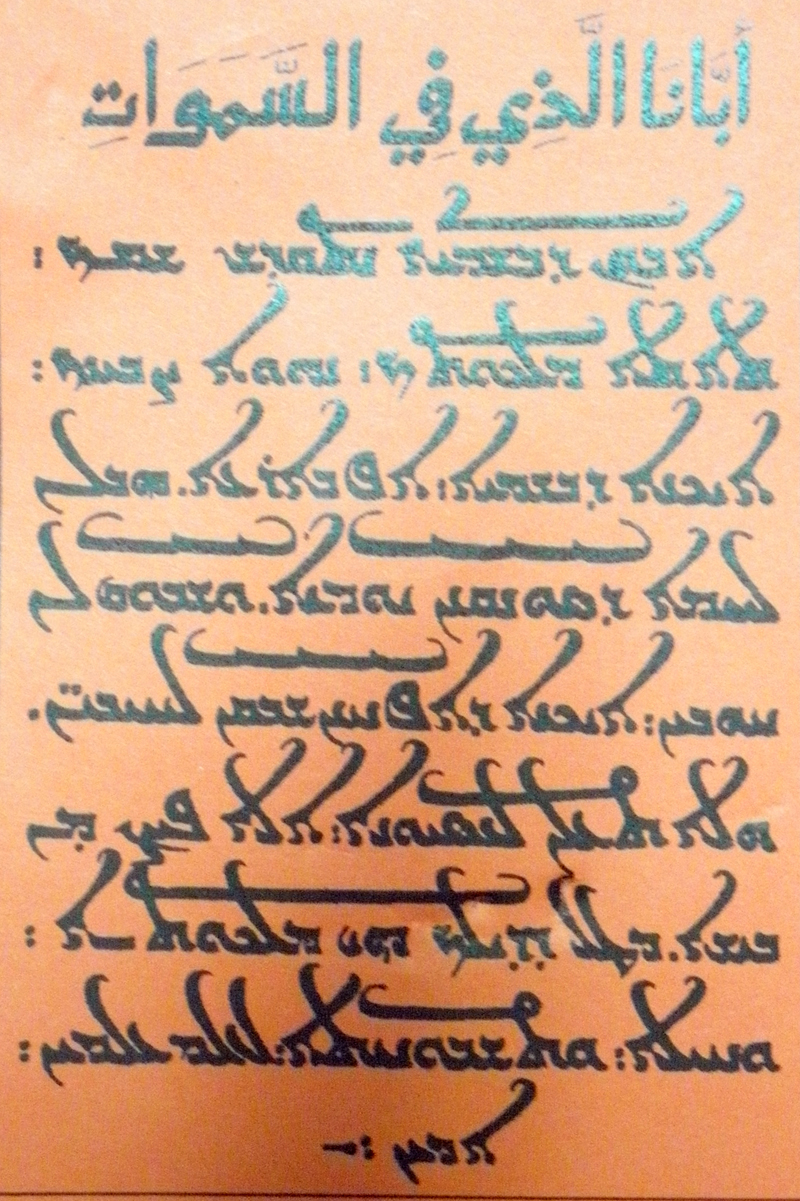 أَبَانَا الَّذِي فِي السَّمَوَاتِ
ܐܒܘܢ ܕܒܫܡܝܐ ܢܬܩܕܫ ܫܡܟ :
ܬܐܬܐ ܡܠܟܘܬܟ: ܢܗܘܐ ܨܒܝܢܟ:
ܐܝܟܢܐ ܕܒܫܡܝܐ: ܐܦ ܒܐܪܥܐ. ܗܒ ܠܢ
ܠܚܡܐ ܕܣܘܢܩܢܢ ܝܘܡܢܐ. ܘܫܒܘܩ ܠܢ
ܚܘܒܝܢ: ܐܝܟܢܐ ܕܐܦ ܚܢܢ ܫܒܩܢ ܠܚܝܒܝ̈ܢ.
ܘܠܐ ܬܥܠܢ ܠܢܣܝܘܢܐ: ܐܠܐ ܦܨܢ ܡܢ
ܒܝܫܐ. ܡܛܠ ܕܕܝܠܟ ܗܝ ܡܠܟܘܬܐ :
ܘܚܝܠܐ: ܘܬܫܒܘܚܬܐ: ܠܥܠܡ ܥܠܡܝܢ:
ܐܡܝܢ :-